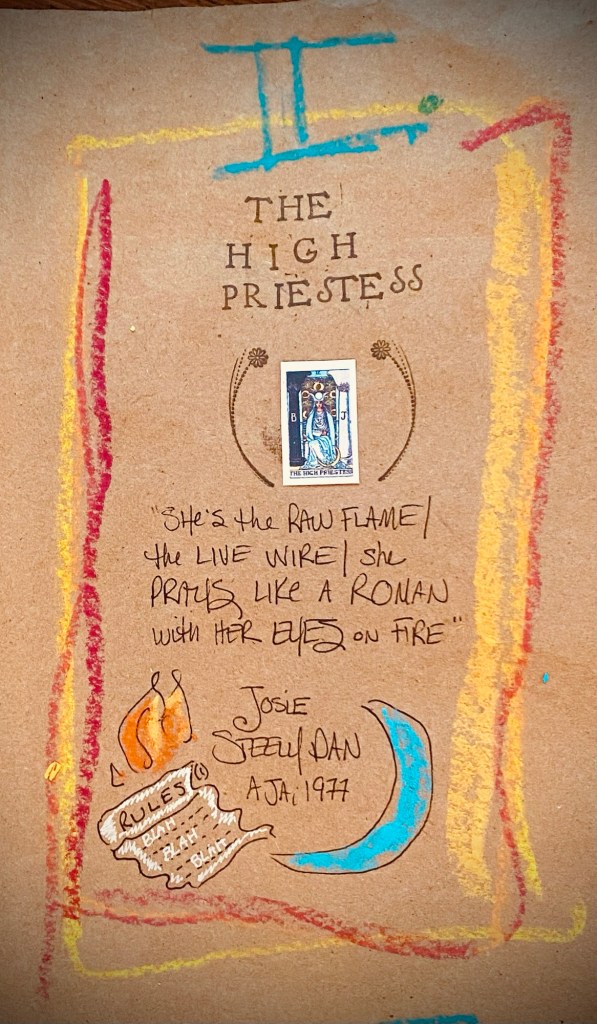 II
THE
HIGH
PRIESTESS
B J
THE HIGH PRIESTESS
"SHE'S the RAW FLAME/
the LIVE WIRE/ she
PRAYS LIKE A ROMAN
with HER EYES ON FIRE"
JOSIE
STEELY DAN
AJA, 1977
RULES
BLAH
BLAH
BLAH